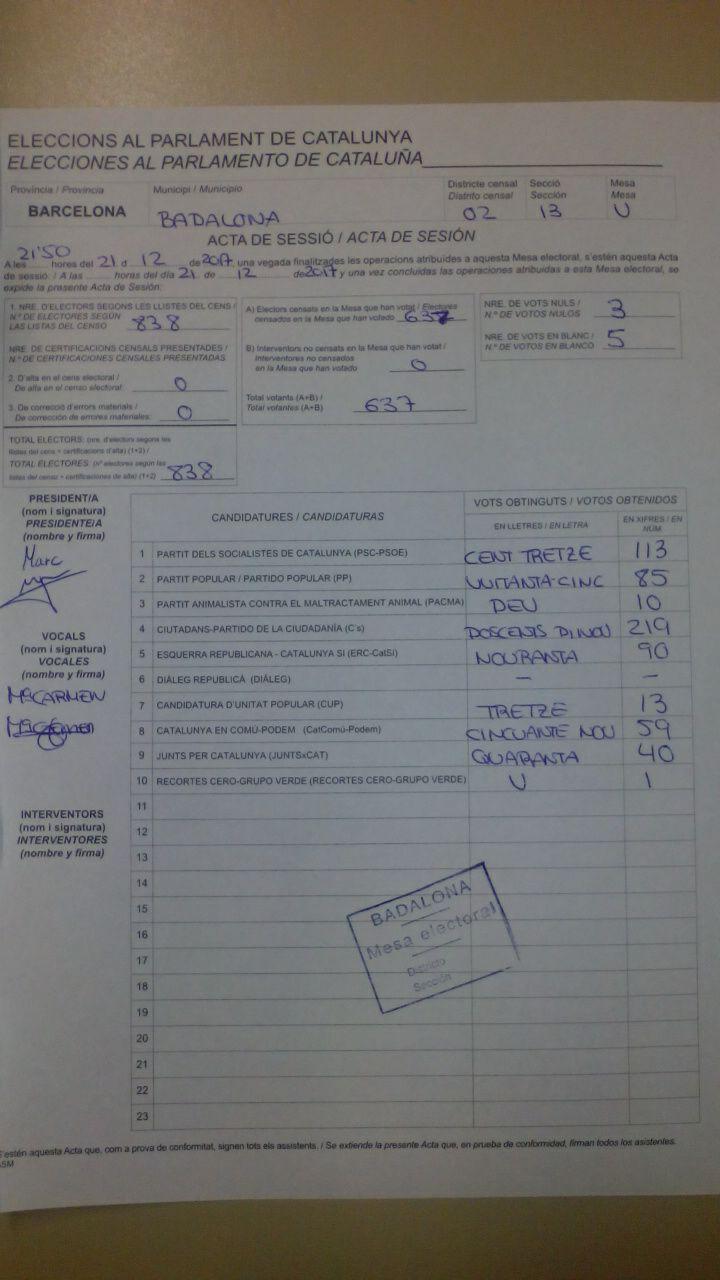 ELECCIONS AL PARLAMENT DE CATALUNYA
ELECCIONES AL PARLAMENTO DE CATALUÑA
Província / Provincia
BARCELONA
Municipi / Municipio
BADALONA
Districte censal
Distrito censal
02
Secció
Sección
13
Mesa
Mesa
U
ACTA DE SESSIÓ / ACTA DE SESIÓN
21'50
A les hores del 21 d 12 de 2017, una vegada finalitzades les operacions atribuïdes a aquesta Mesa electoral, s'estén aquesta Acta
de sessió. / A las horas del día 21 de 12 de 2017 y una vez concluidas las operaciones atribuidas a esta Mesa electoral, se
expide la presente Acta de Sesión:
1. NRE. D'ELECTORS SEGONS LES LLISTES DEL CENS /
N.º DE ELECTORES SEGÚN
LAS LISTAS DEL CENSO 838
NRE. DE CERTIFICACIONS CENSALS PRESENTADES /
N.º DE CERTIFICACIONES CENSALES PRESENTADAS
2. D'alta en el cens electoral /
De alta en el censo electoral: 0
3. De correcció d'errors materials /
De corrección de errores materiales: 0
TOTAL ELECTORS: (nre. d'electors segons les
llistes del cens + certificacions d'alta) (1+2) /
TOTAL ELECTORES: (nº electores según las
listas del censo + certificaciones de alta) (1+2) 838
A) Electors censats en la Mesa que han votat / Electores
censados en la Mesa que han votado 637
B) Interventors no censats en la Mesa que han votat /
Interventores no censados
en la Mesa que han votado 0
Total votants (A+B) /
Total votantes (A+B) 637
NRE. DE VOTS NULS /
N.º DE VOTOS NULOS 3
NRE. DE VOTS EN BLANC /
N.º DE VOTOS EN BLANCO 5
PRESIDENT/A
(nom i signatura)
PRESIDENTE/A
(nombre y firma)
Marc
VOCALS
(nom i signatura)
VOCALES
(nombre y firma)
MªCARMEN
INTERVENTORS
(nom i signatura)
INTERVENTORES
(nombre y firma)
CANDIDATURES / CANDIDATURAS
VOTS OBTINGUTS / VOTOS OBTENIDOS
EN LLETRES / EN LETRA
EN XIFRES / EN NÚM.
1 PARTIT DELS SOCIALISTES DE CATALUNYA (PSC-PSOE) CENT TRETZE 113
2 PARTIT POPULAR / PARTIDO POPULAR (PP) VUITANTA-CINC 85
3 PARTIT ANIMALISTA CONTRA EL MALTRACTAMENT ANIMAL (PACMA) DEU 10
4 CIUTADANS-PARTIDO DE LA CIUDADANÍA (C's) DOSCENTS DINOU 219
5 ESQUERRA REPUBLICANA - CATALUNYA SI (ERC-CatSI) NOURANTA 90
6 DIÀLEG REPUBLICÀ (DIÀLEG) – –
7 CANDIDATURA D'UNITAT POPULAR (CUP) TRETZE 13
8 CATALUNYA EN COMÚ-PODEM (CatComú-Podem) CINCUANTE NOU 59
9 JUNTS PER CATALUNYA (JUNTSxCAT) QUARANTA 40
10 RECORTES CERO-GRUPO VERDE (RECORTES CERO-GRUPO VERDE) U 1
11
12
13
14
15
16
17
18
19
20
21
22
23
BADALONA
Mesa electoral
Districto
Sección
S'estén aquesta Acta que, com a prova de conformitat, signen tots els assistents. / Se extiende la presente Acta que, en prueba de conformidad, firman todos los asistentes.